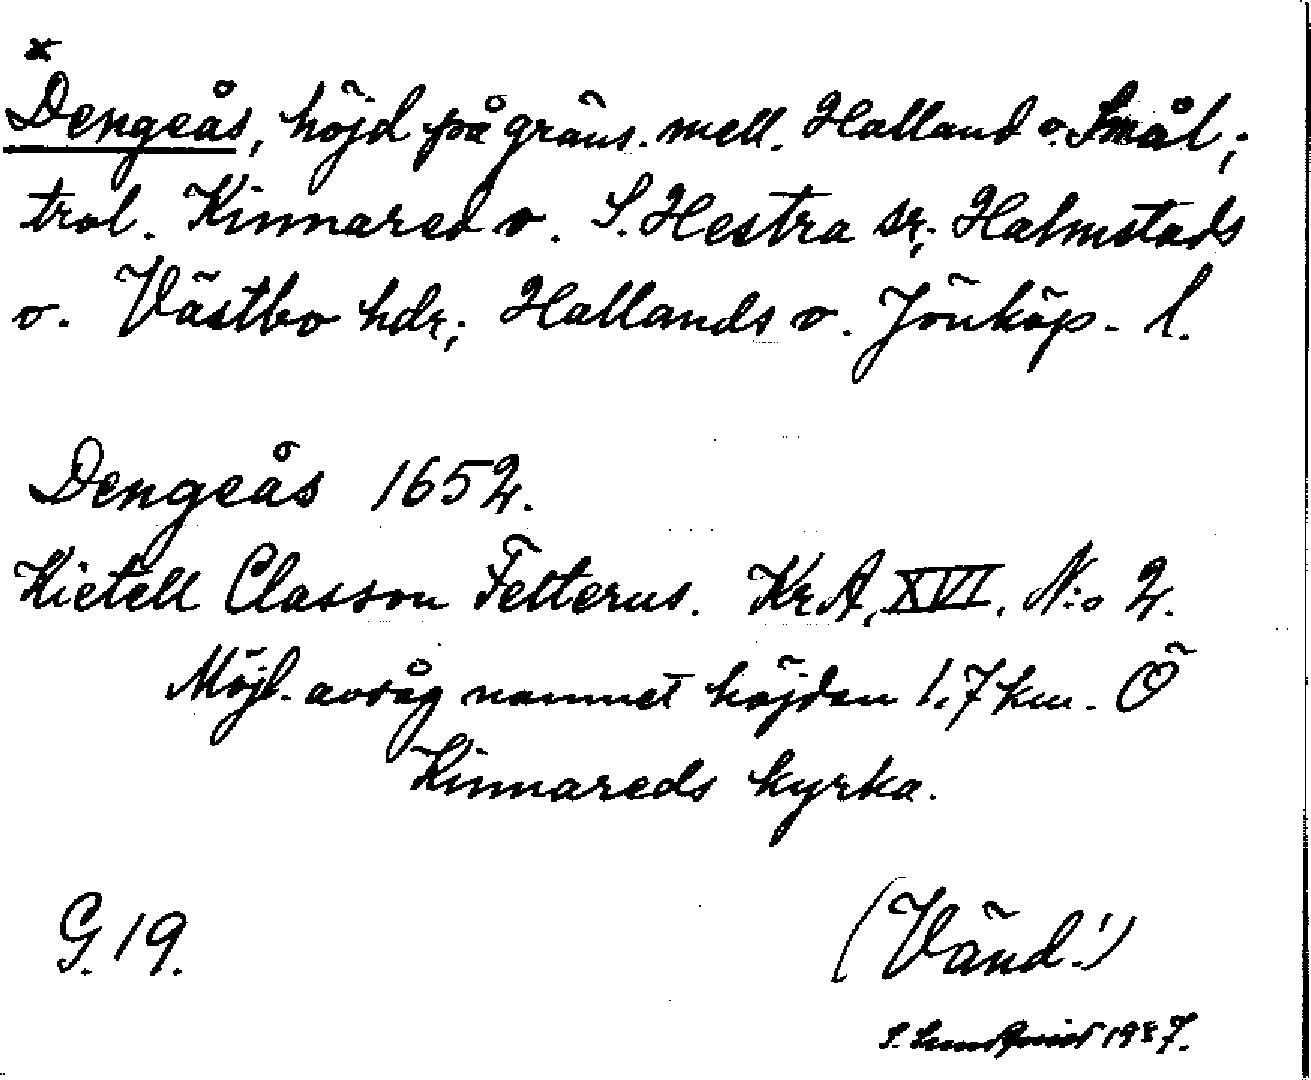 *
Dengeås, höjd på gräns. mell. Halland o. Smål.;
trol. Kinnared o. S. Hestra sr, Halmstads
o. Västbo hdr; Hallands o. Jönköp. l.
Dengeås 1652.
Kietell Classon Felterus. KrA, XVI, N:o 2.
Möjl. avsåg namnet höjden 1.7 km. Ö
Kinnareds kyrka.
G. 19.
(Vänd!)